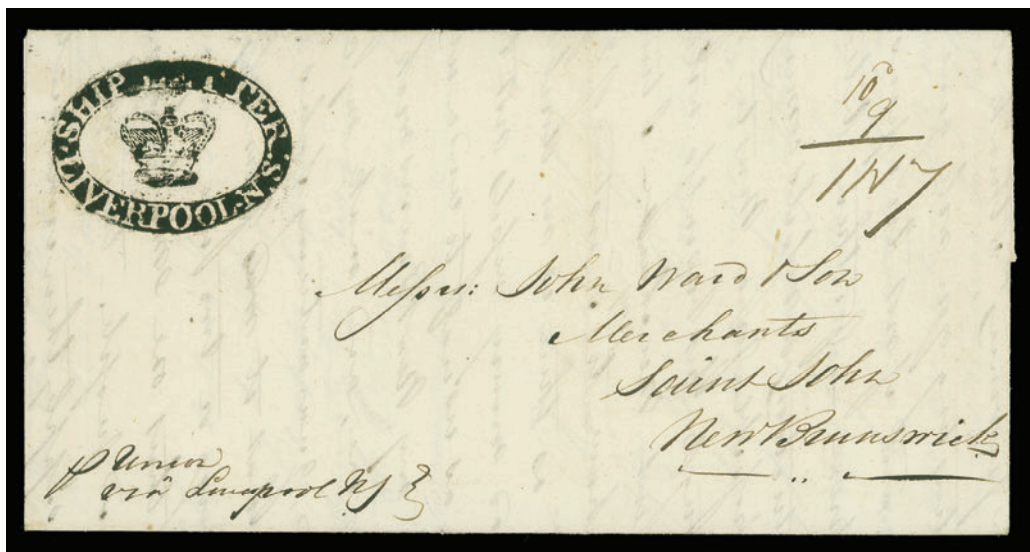 SHIP LETTER
LIVERPOOL.N.S.
10
9
1N7
Messrs: John Ward & Son
Merchants
Saint John
New Brunswick
p Union
via Liverpool NS